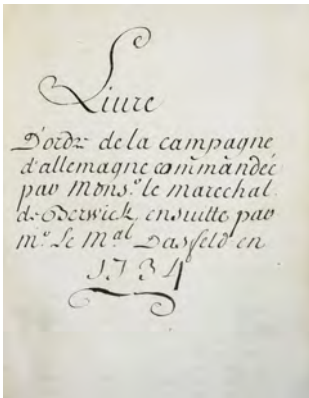 Liure
D'ordre de la campagne
d'allemagne commandée
par Mons.r le marechal
de Berwick, ensuitte par
m.r Le M.al Dasfeld en
1734